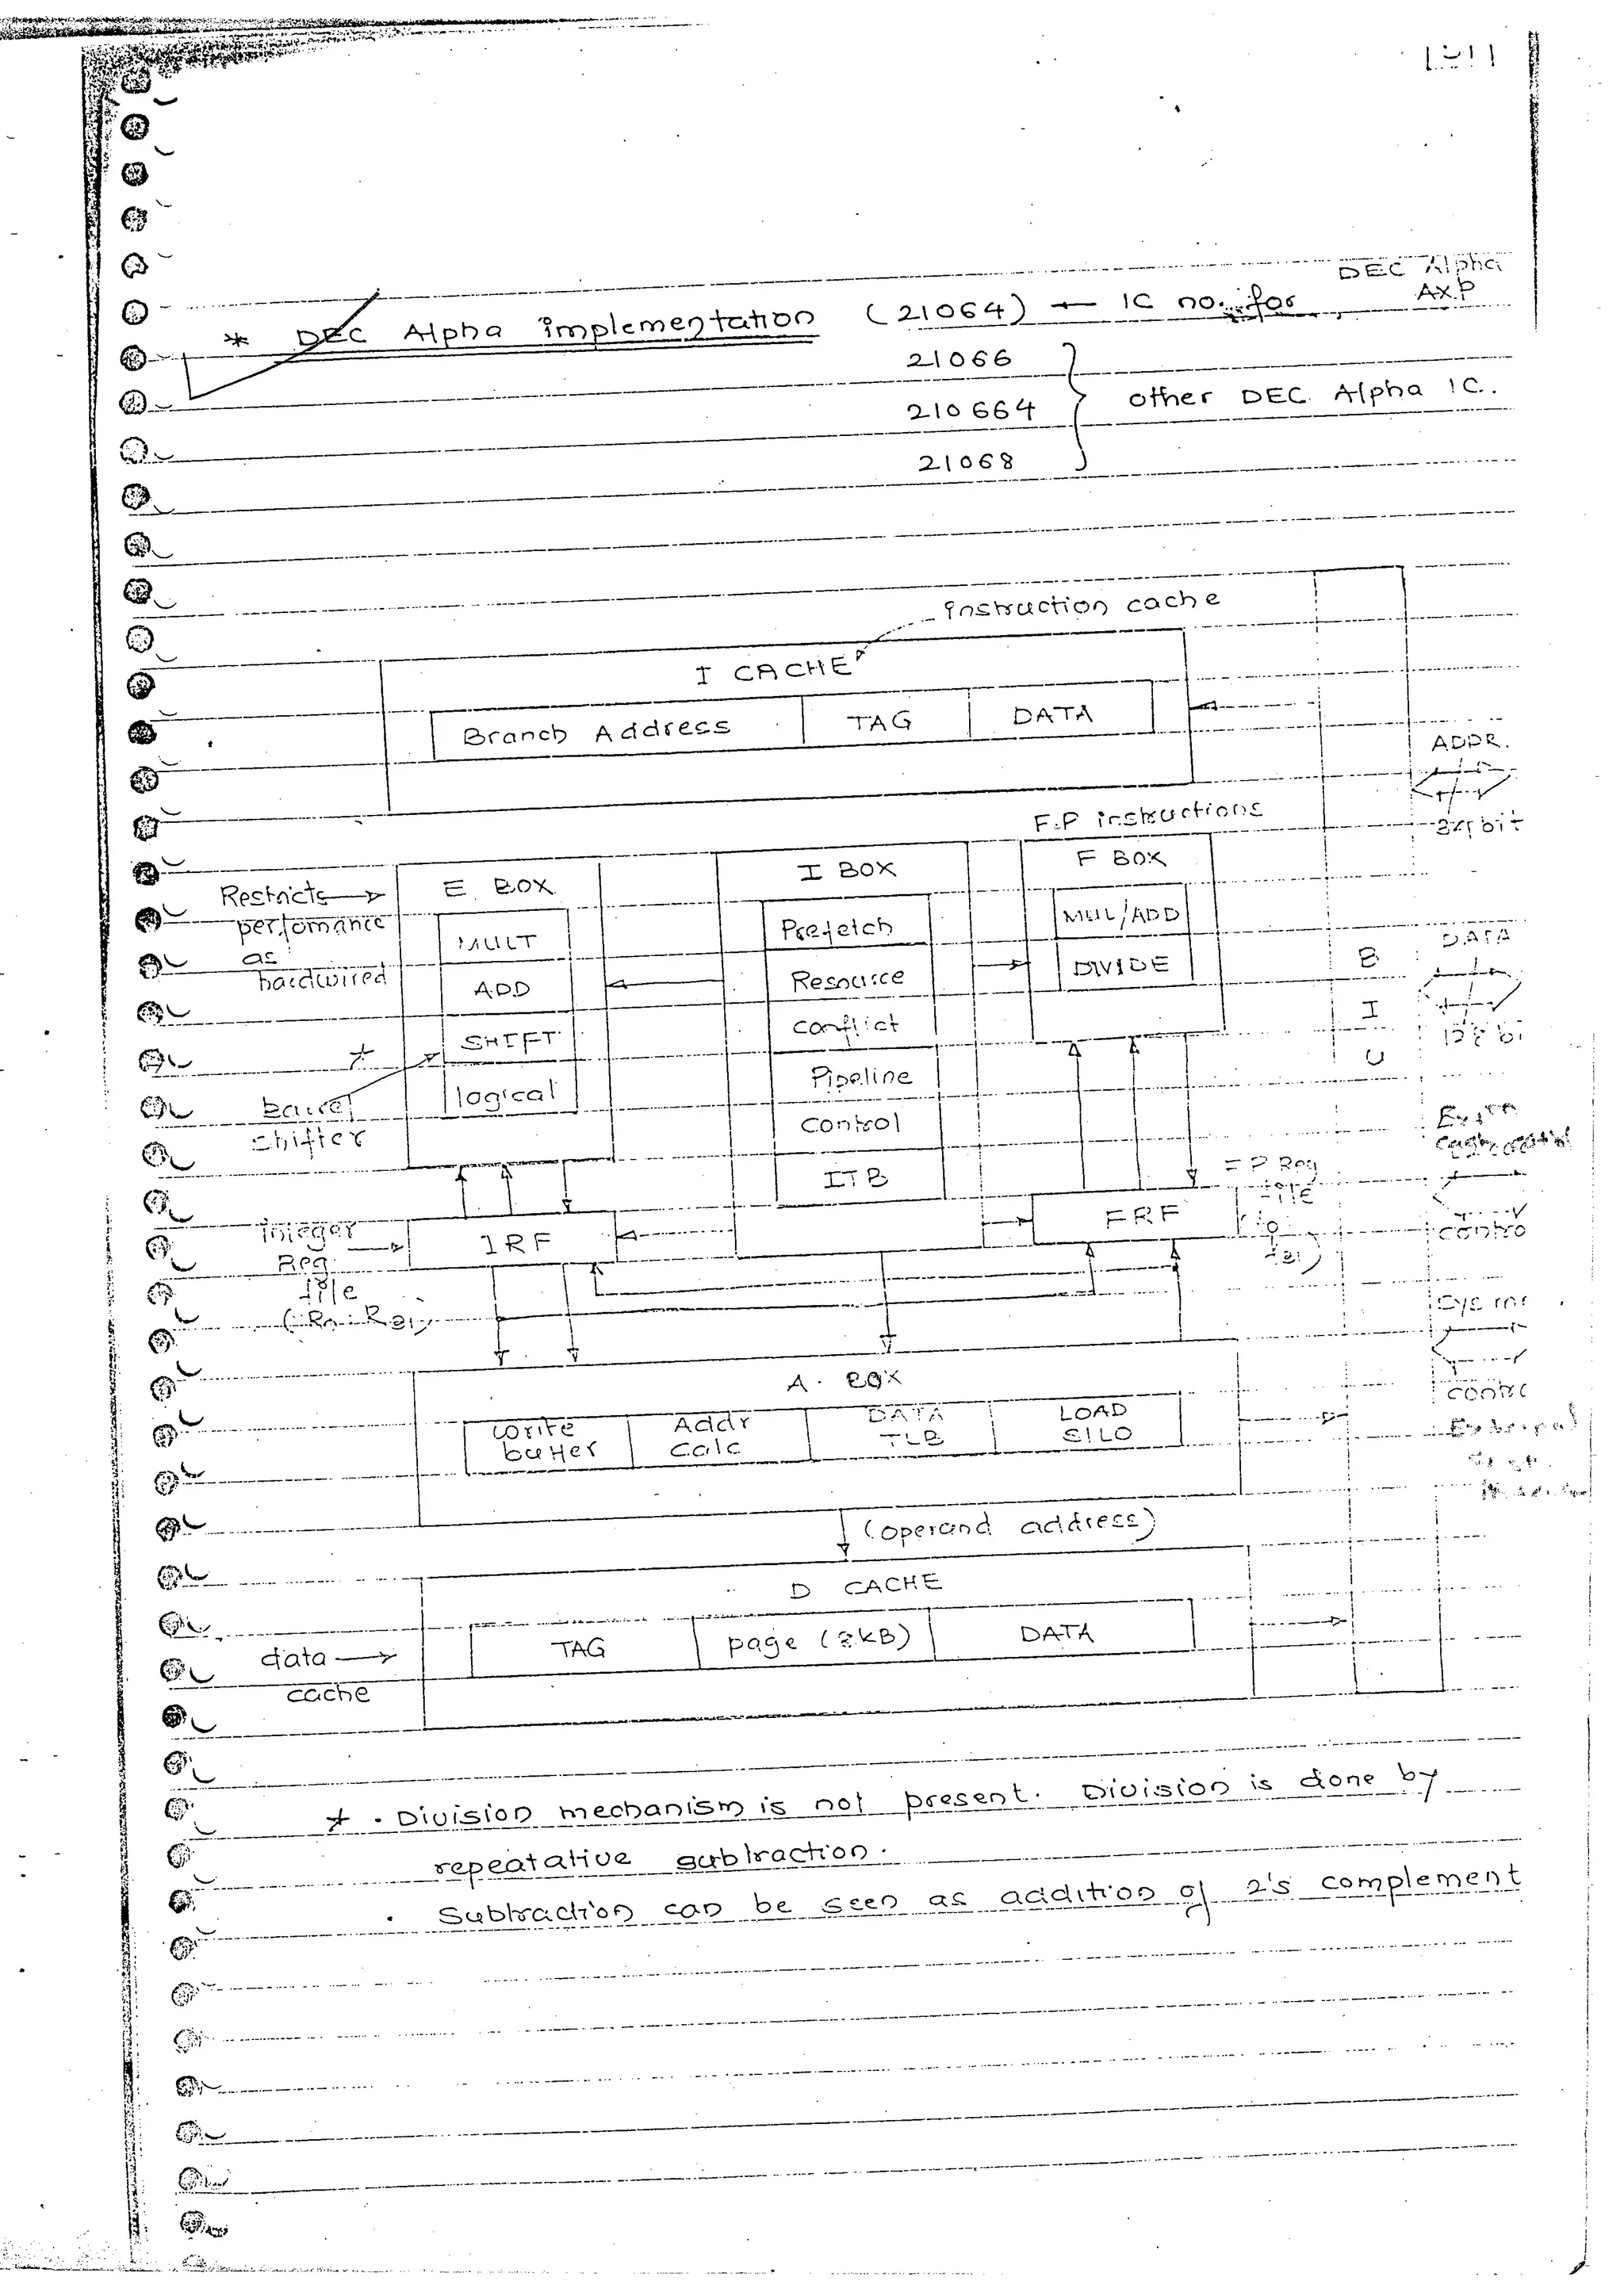 DEC Alpha
* DEC Alpha implementation (21064) ← IC no. for AXP
21066
210664 } other DEC Alpha IC.
21068
instruction cache
I CACHE
Branch Address TAG DATA
ADDR.
F.P instructions
bit
Restricts → E BOX I BOX F BOX
perfomance MULT Prefetch MUL/ADD
as DATA
hardwired ADD Resource DIVIDE B
* SHIFT conflict I
barrel logical Pipeline U
shifter control
ITB
F P Reg
file
Integer → IRF FRF
Reg
file
A. BOX
write Addr DATA LOAD
buffer calc TLB SILO
(operand address)
D CACHE
data → TAG page (8kB) DATA
cache
* . Division mechanism is not present. Division is done by
repeatative subtraction.
. Subtraction can be seen as addition of 2's complement